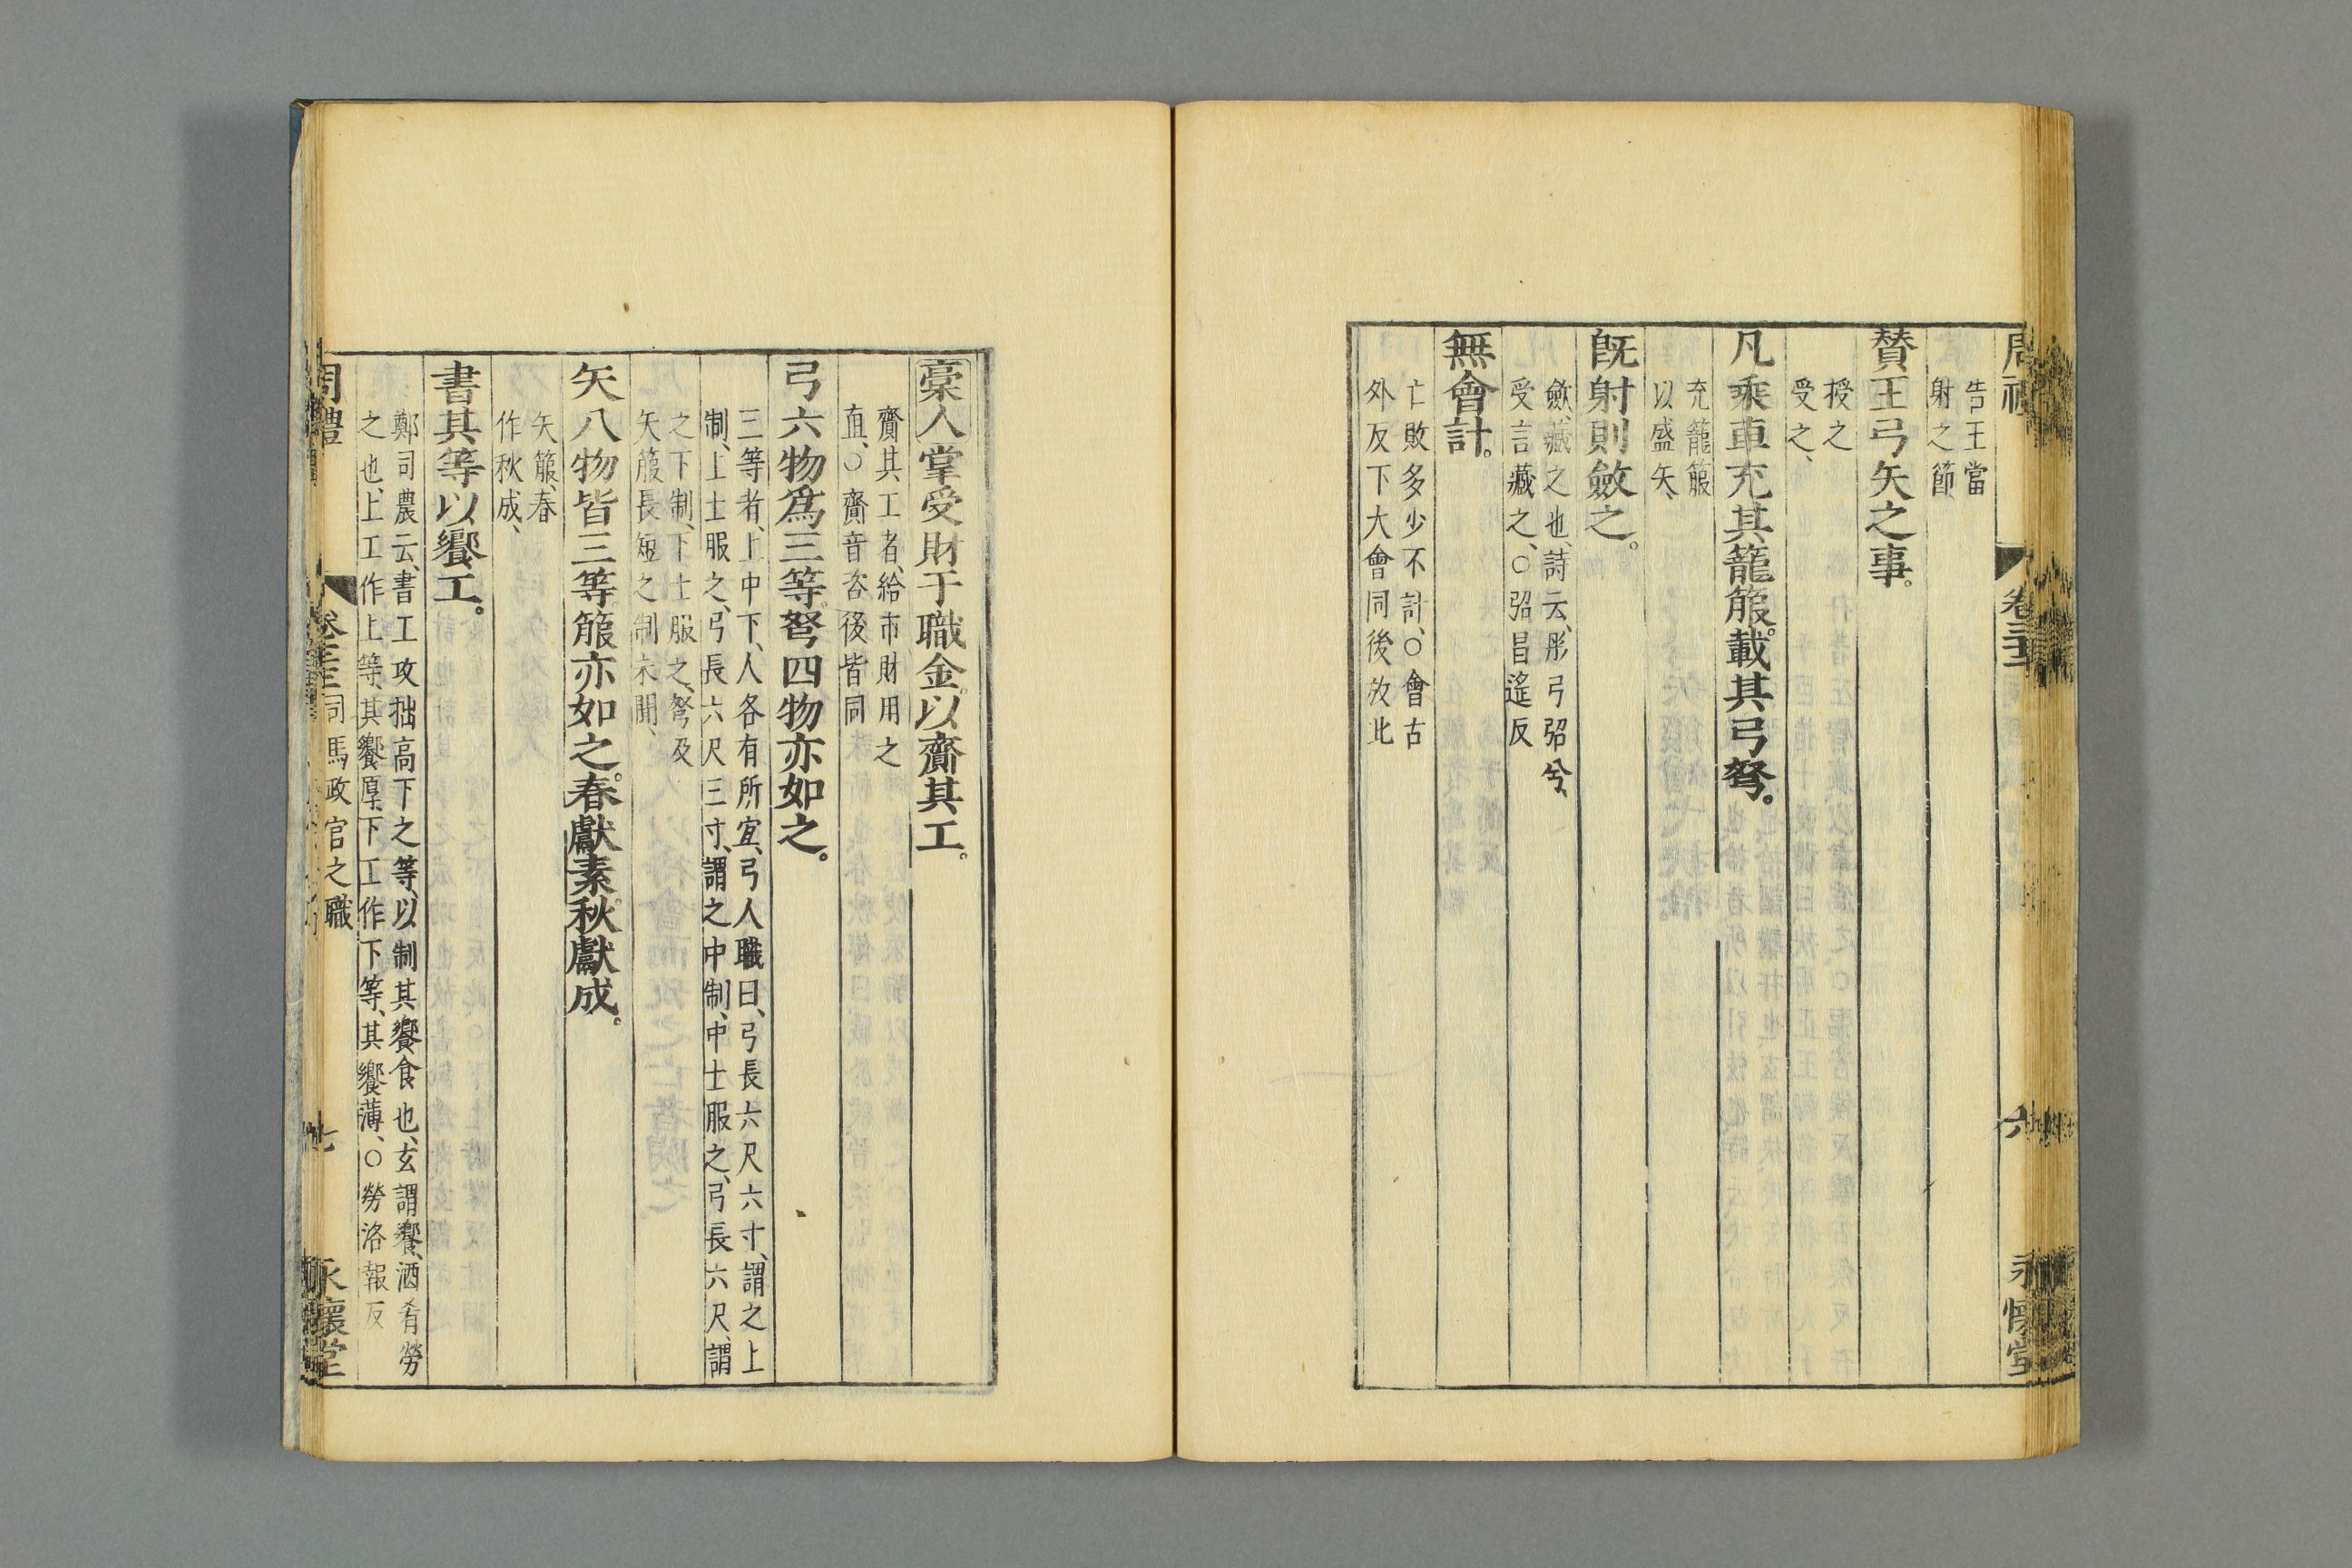 告王當
射之節
贊王弓矢之事。
授之
受之、
凡乘車充其籠箙。載其弓弩。
充籠箙
以盛矢、
旣射則斂之。
斂、藏之也、詩云、彤弓弨兮、
受言藏之、○弨昌遙反
無會計。
亡敗多少不計、○會古
外反下大會同後放此
卷三十二
六
永懷堂
稾人掌受財于職金。以齎其工。
齎其工者、給市財用之
直、○齎音咨後皆同
弓六物爲三等。弩四物亦如之。
三等者、上中下、人各有所宜、弓人職曰、弓長六尺六寸、謂之上
制、上士服之、弓長六尺三寸、謂之中制、中士服之、弓長六尺、謂
之下制、下士服之、弩及
矢箙長短之制未聞、
矢八物皆三等。箙亦如之。春獻素。秋獻成。
矢箙、春
作秋成、
書其等以饗工。
鄭司農云、書工攻拙高下之等、以制其饗食也、玄謂饗、酒肴勞
之也、上工作上等、其饗厚、下工作下等、其饗薄、○勞洛報反
周禮
司馬政官之職
七
永懷堂